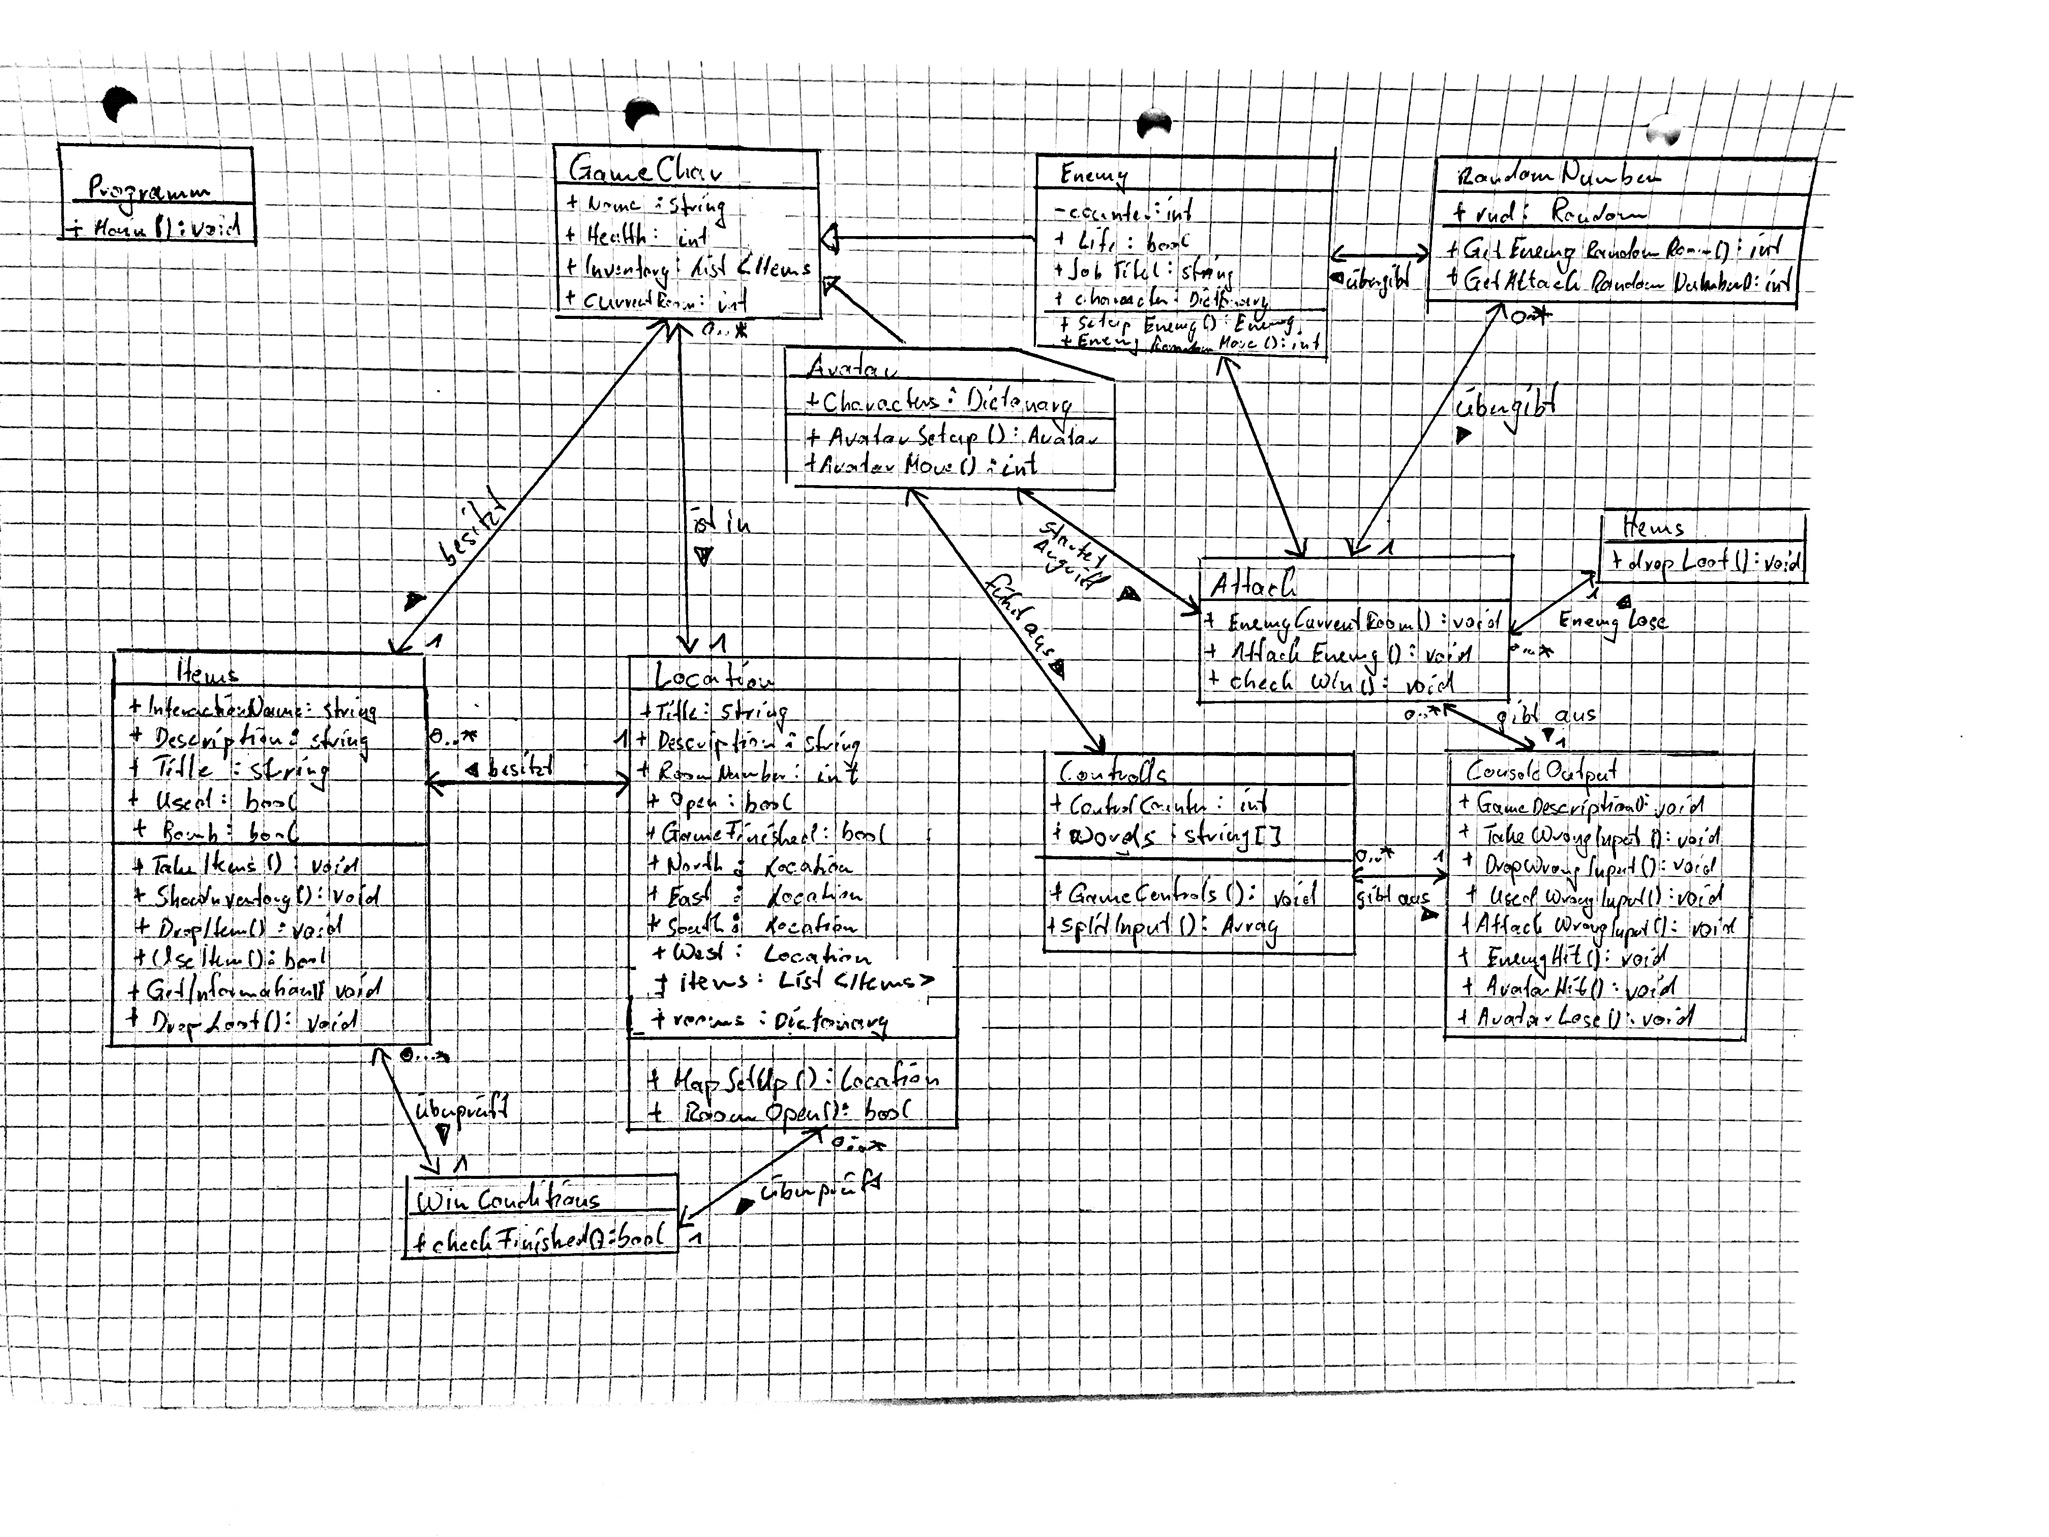 Programm
+ Main(): void
GameChar
+ Name: string
+ Health: int
+ Inventory: List <Items
+ CurrentRoom: int
0..*
Enemy
-counter: int
+ Life: bool
+ Job Titel: string
+ character: Dictionary
+ Setup Enemy(): Enemy
+ Enemy Random Move(): int
übergibt
RandomNumber
+ rnd: Random
+ Get Enemy Random Room(): int
+ GetAttack Random Number(): int
0..*
übergibt
Avatar
+Characters: Dictonary
+ AvatarSetup(): Avatar
+Avatar Move(): int
besitzt
1
ist in
1
führt aus
startet
Angriff
1
Attack
+ EnemyCurrentRoom(): void
+ Attack Enemy(): void
+ check Win(): void
Items
+ drop Loot(): void
1
Enemy Lose
0...*
0...*
gibt aus
1
Items
+ InteractionName: string
+ Description: string
+ Title: string
+ Used: bool
+ Bomb: bool
+ Take Items(): void
+ ShowInventory(): void
+ DropItem(): void
+ Use Item(): bool
+ GetInformation() void
+ Drop Loot(): void
0..*
besitzt
1
Location
+Title: string
+ Description: string
+ RoomNumber: int
+ Open: bool
+ GameFinished: bool
+ North: Location
+ East: Location
+ South: Location
+ West: Location
+ items: List <Items>
+ rooms: Dictonary
+ MapSetUp(): Location
+ Room Open(): bool
Controlls
+ ControlCounter: int
+ words: string[]
+ GameControls(): void
+ SplitInput(): Array
0..*
1
gibt aus
ConsoleOutput
+ GameDescription(): void
+ Take WrongInput(): void
+ DropWrongInput(): void
+ Used WrongInput(): void
+ Attack WrongInput(): void
+ EnemyHit(): void
+ AvatarHit(): void
+ AvatarLose(): void
0...*
überprüft
1
0...*
überprüft
1
Win Conditions
+ checkFinished(): bool